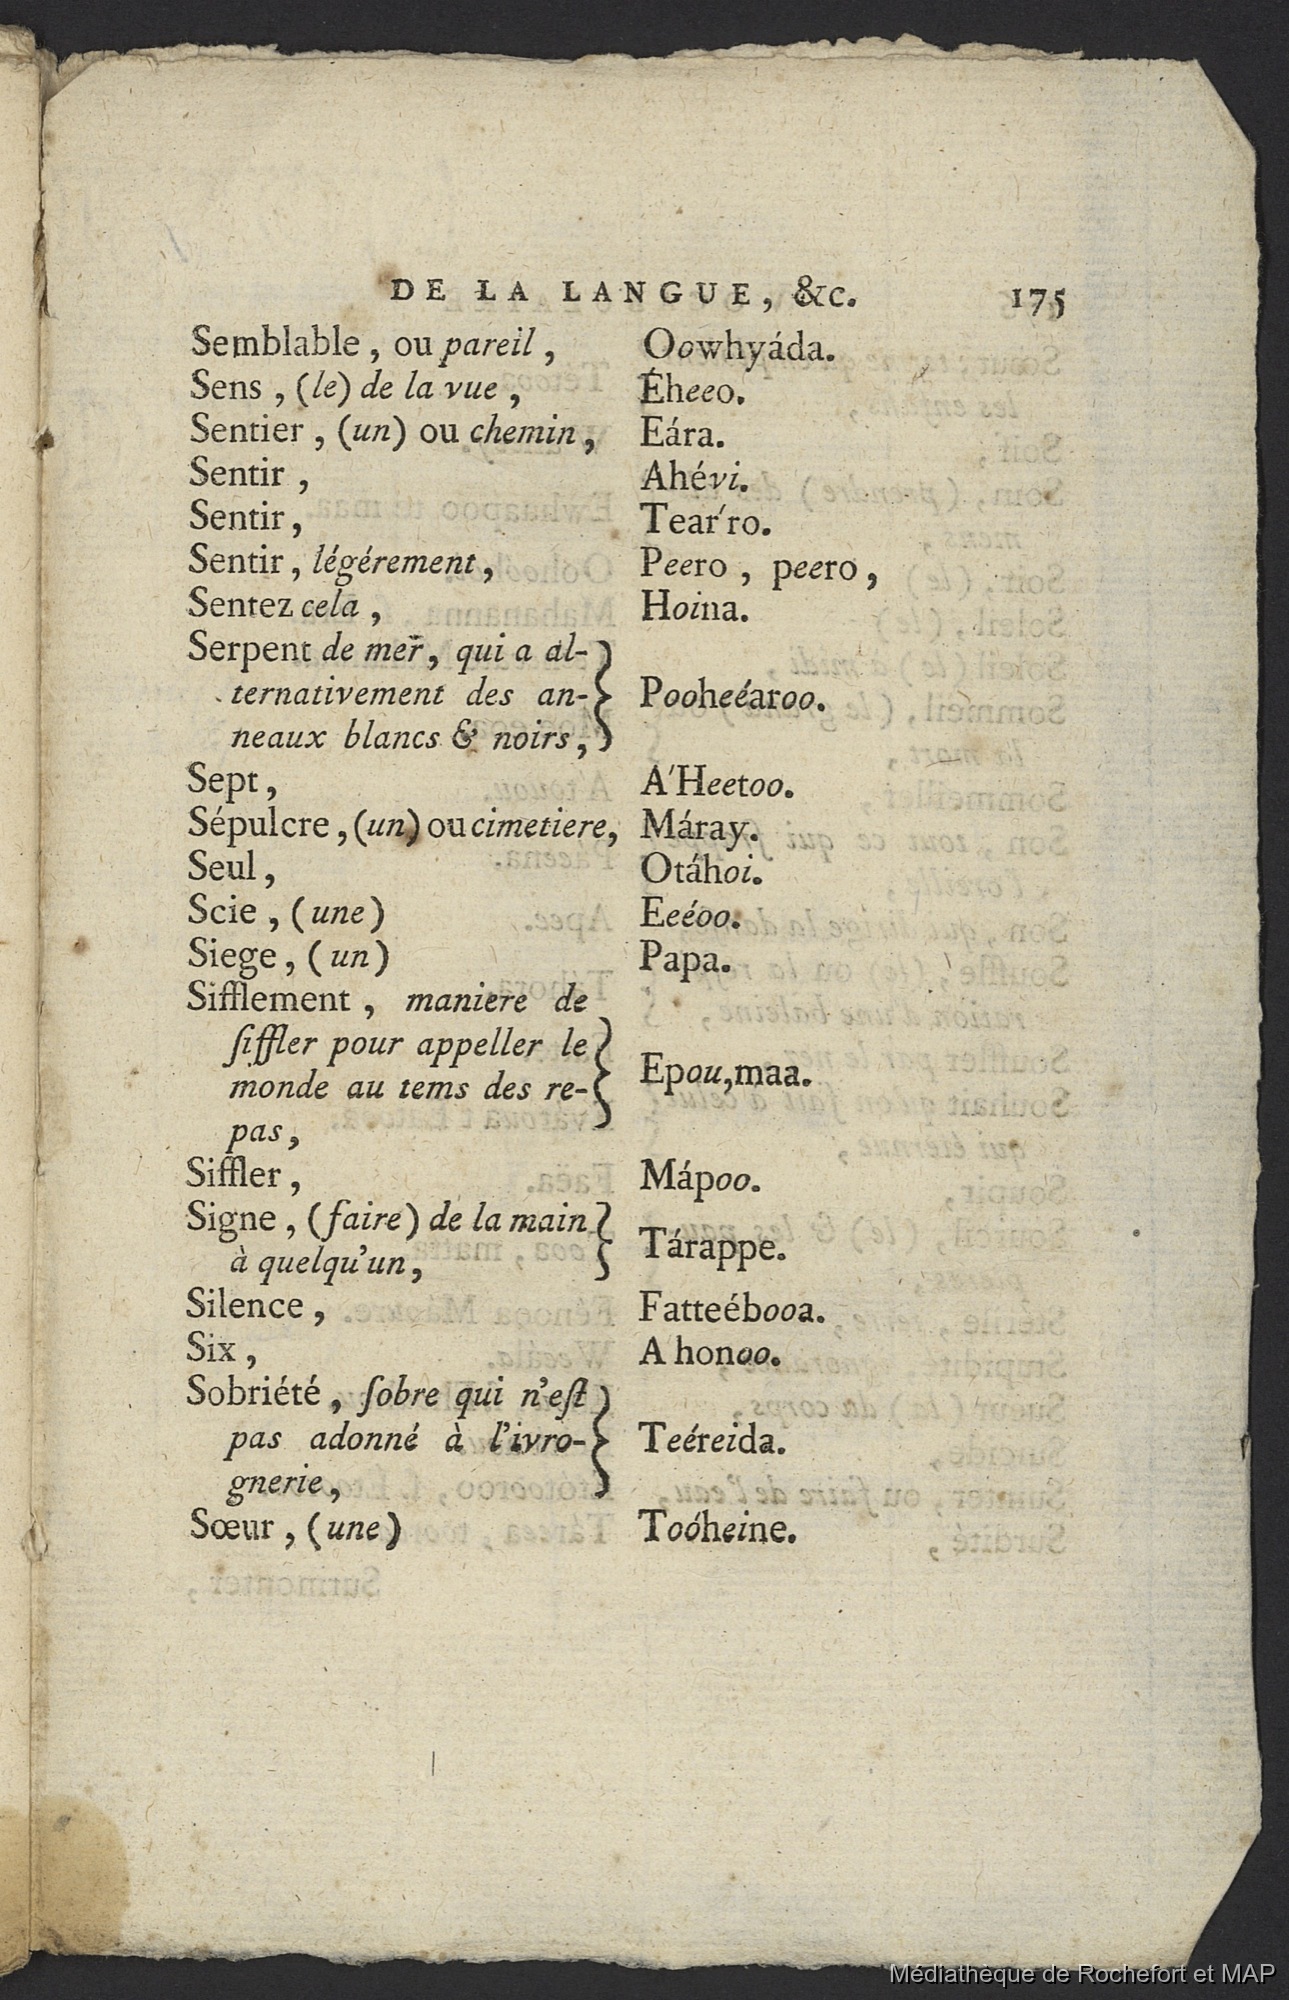 DE LA LANGUE, &c. 175
Semblable, ou pareil, Oowhyáda.
Sens, (le) de la vue, Éheeo.
Sentier, (un) ou chemin, Eára.
Sentir, Ahévi.
Sentir, Tear'ro.
Sentir, légérement, Peero, peero,
Sentez cela, Hoina.
Serpent de mer, qui a al-
ternativement des an- Pooheéaroo.
neaux blancs & noirs,
Sept, A'Heetoo.
Sépulcre, (un) ou cimetiere, Máray.
Seul, Otáhoi.
Scie, (une) Eeéoo.
Siege, (un) Papa.
Sifflement, maniere de
ſiffler pour appeller le
monde au tems des re- Epou,maa.
pas,
Siffler, Mápoo.
Signe, (faire) de la main
à quelqu'un, Tárappe.
Silence, Fatteébooa.
Six, A honoo.
Sobriété, ſobre qui n'eſt
pas adonné à l'ivro- Teéreida.
gnerie,
Sœur, (une) Toóheine.
Médiathèque de Rochefort et MAP